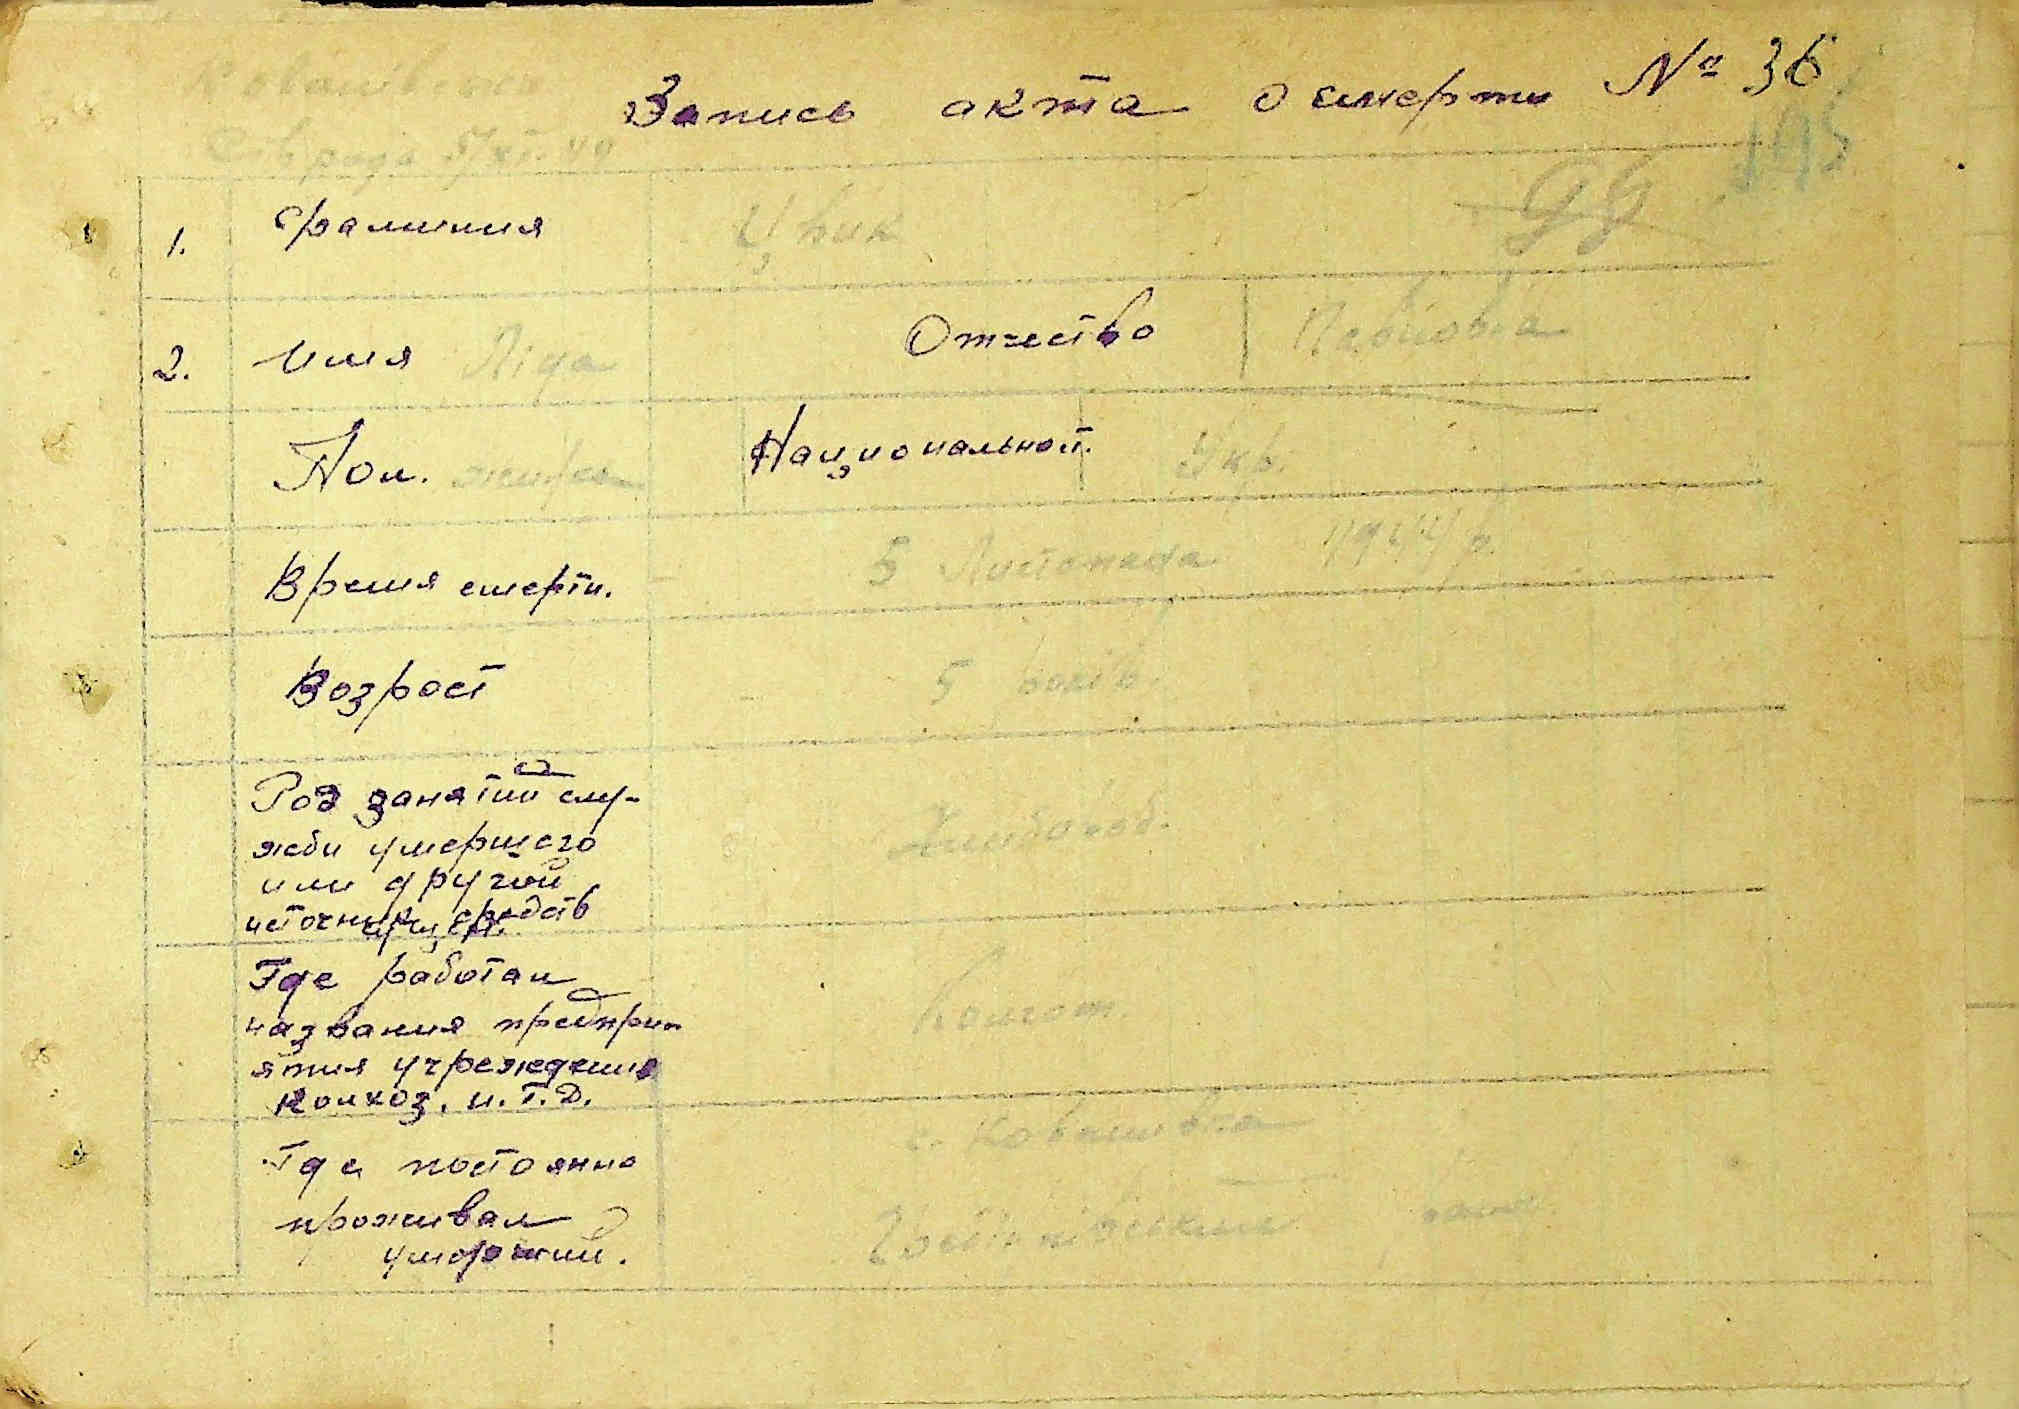 Запись акта о смерти № 36
195
99
1. Фамилия Цвик
2. Имя Ліда Отчество Павловна
Пол. жін Националност. Укр.
Время смерти. 5 Листопада 1944 р.
Возрост 5 років.
Род занятий слу-
жбы умершего
или другой
источник средств
Хлібороб.
Где работал
названия предпри
ятия учреждения
Колхоз. и. т. д.
Колгосп.
Где постоянно
проживал
умерший.